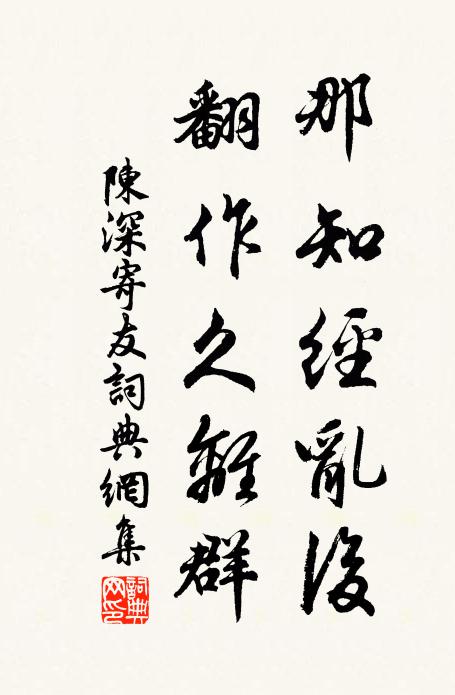 那知經亂後
翻作久離群
陳深寄友詞典網集
詞典网印